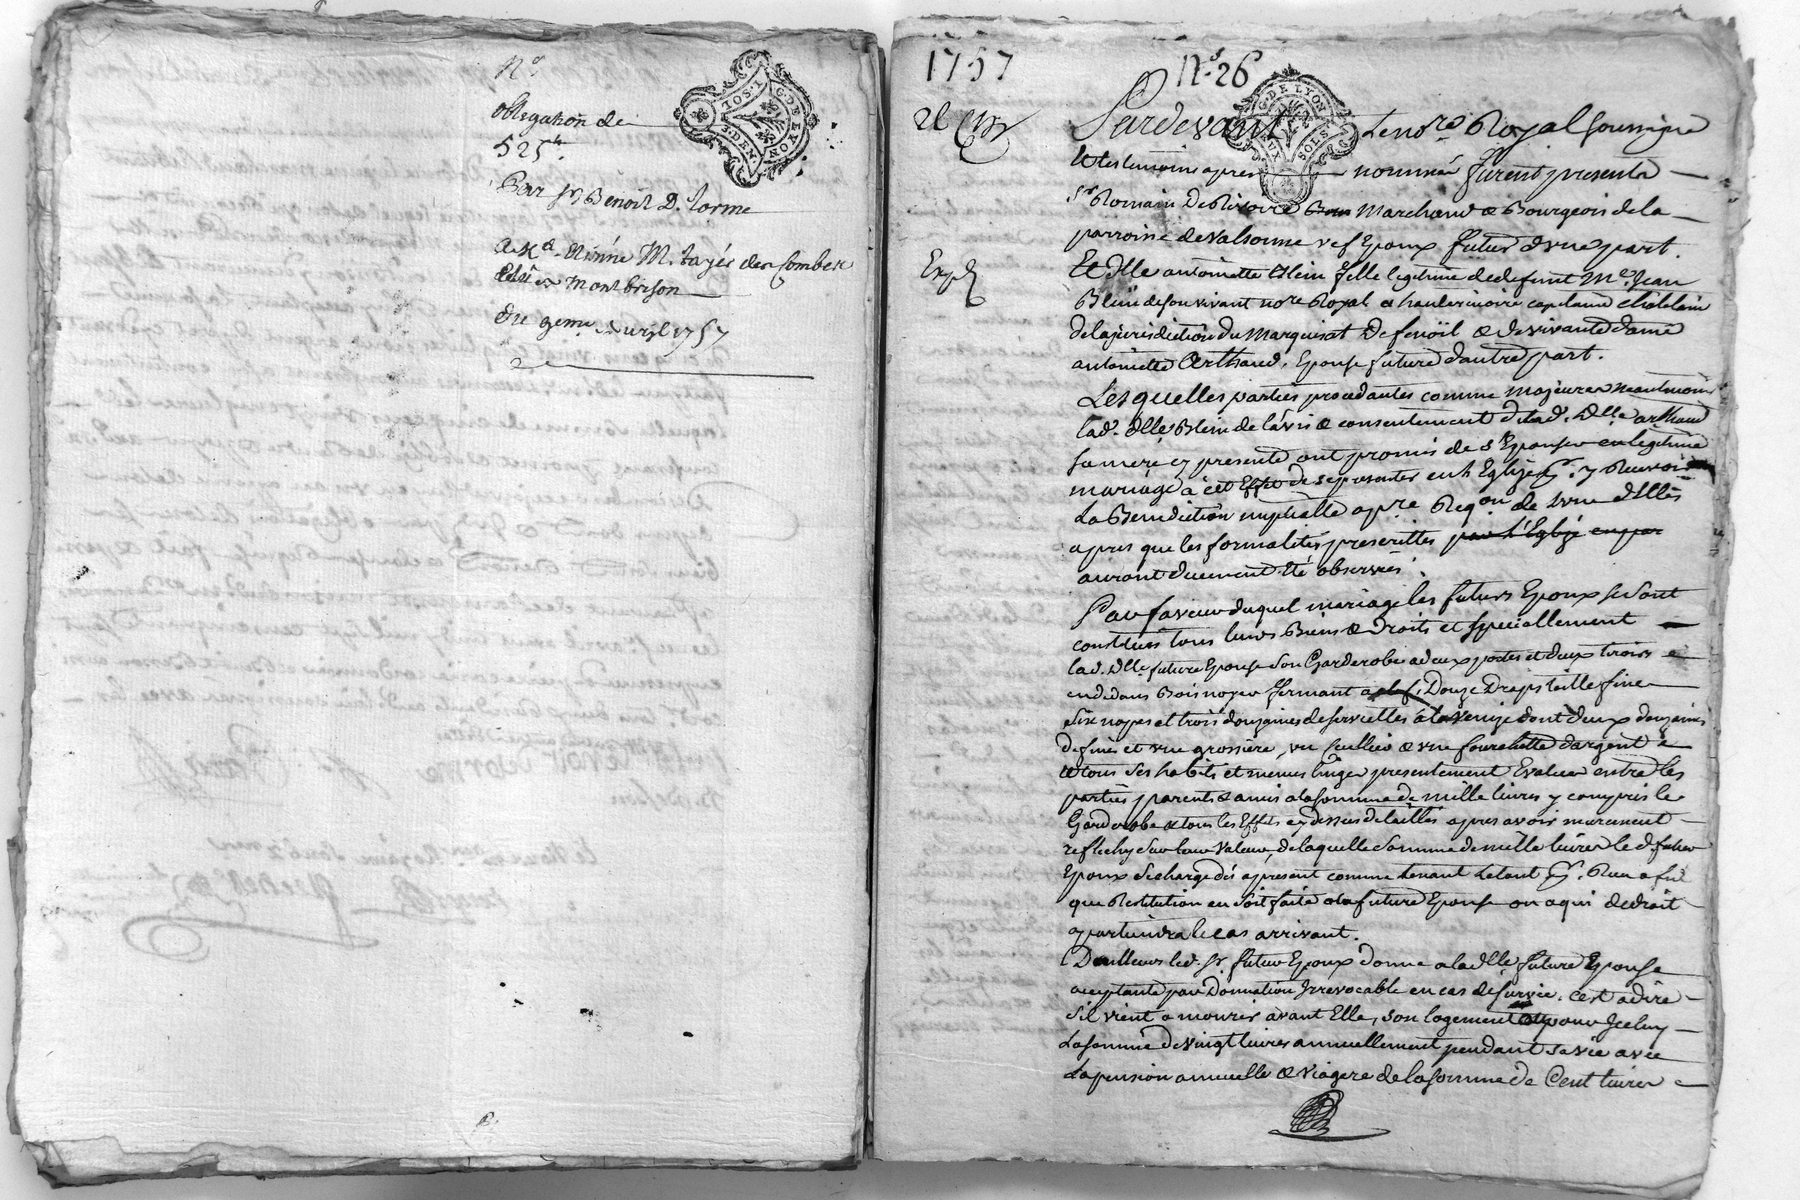 N°
obligation de
525 lt.
Par Sr Benoit D. lorme
a Md. Etienne M. tayér des Combes
Elû a Montbrison
du 9eme avril 1757
G. DE LYON
1. SOL
3. DEN.
1757
N.° 26
G. DE LYON
SOLS
Pardevant Le no.re Royal soussigné
Et tesmoins apres nommés furent presents
Sr Romain De Rivoire Marchand & Bourgeois de la
parroisse de Valsonne vef Epoux futur d'vne part.
Et dlle antoinette Blein fille legitime de defunt Me. Jean
Blein de son vivant nore Royal a hauterivoire capitaine chatelain
de la jurisdiction du Marquisat De fenoïl & de vivante dame
antoinette Arthaud, Epouse future d'autre part.
Expd
Les quelles parties procedantes comme majeures neantmoins
lad. dlle Blein de l'avis & consentement de lad. Dlle arthaud
sa mere cy presente ont promis de s'Epouser en legitime
mariage a cet Effet de se presenter en ste Eglise pr. y Recevoir
La Benediction nuptialle a pre Reqon de l'vne d'Elles
apres que les formalités prescrittes par L'Eglize
auront duement Eté observées.
En faveur duquel mariage les futurs Epoux se sont
constitués tous leurs Biens & droits et specialement
lad. dlle future Epouse son Garderobe a deux portes et deux tiroirs
en dedans Bois noyer fermant a clef, Douze Draps toille fine
Six napes et trois douzaines de serviettes a la venize dont deux douzaines
de fines et vne grossiere, vn cueillier & vne fourchette d'argent
et tous ses habits et menus linges presentement Evalués entre les
parties, parents & amis a la somme de mille livres y compris le
Garderobe & tous les Effets cy dessus detaillés apres avoir murement
reflechy sur leur valeur, de laquelle somme de mille livres le d. futur
Epoux se charge dès apresent comme tenant Letout pr. Reçu a fin
que Restitution en soit faite a la future Epouse ou a qui de droit
apartiendra le cas arrivant.
D'ailleurs led. Sr. futur Epoux donne a la dlle future Epouse
acceptante par Donnation Irrevocable en cas de survie, c'est adire
s'il vient a mourir avant Elle, son logement pour Iceluy
La somme de vingt livres annuellement pendant sa vie avec
La pension annuelle & viagere de la somme de Cent livres